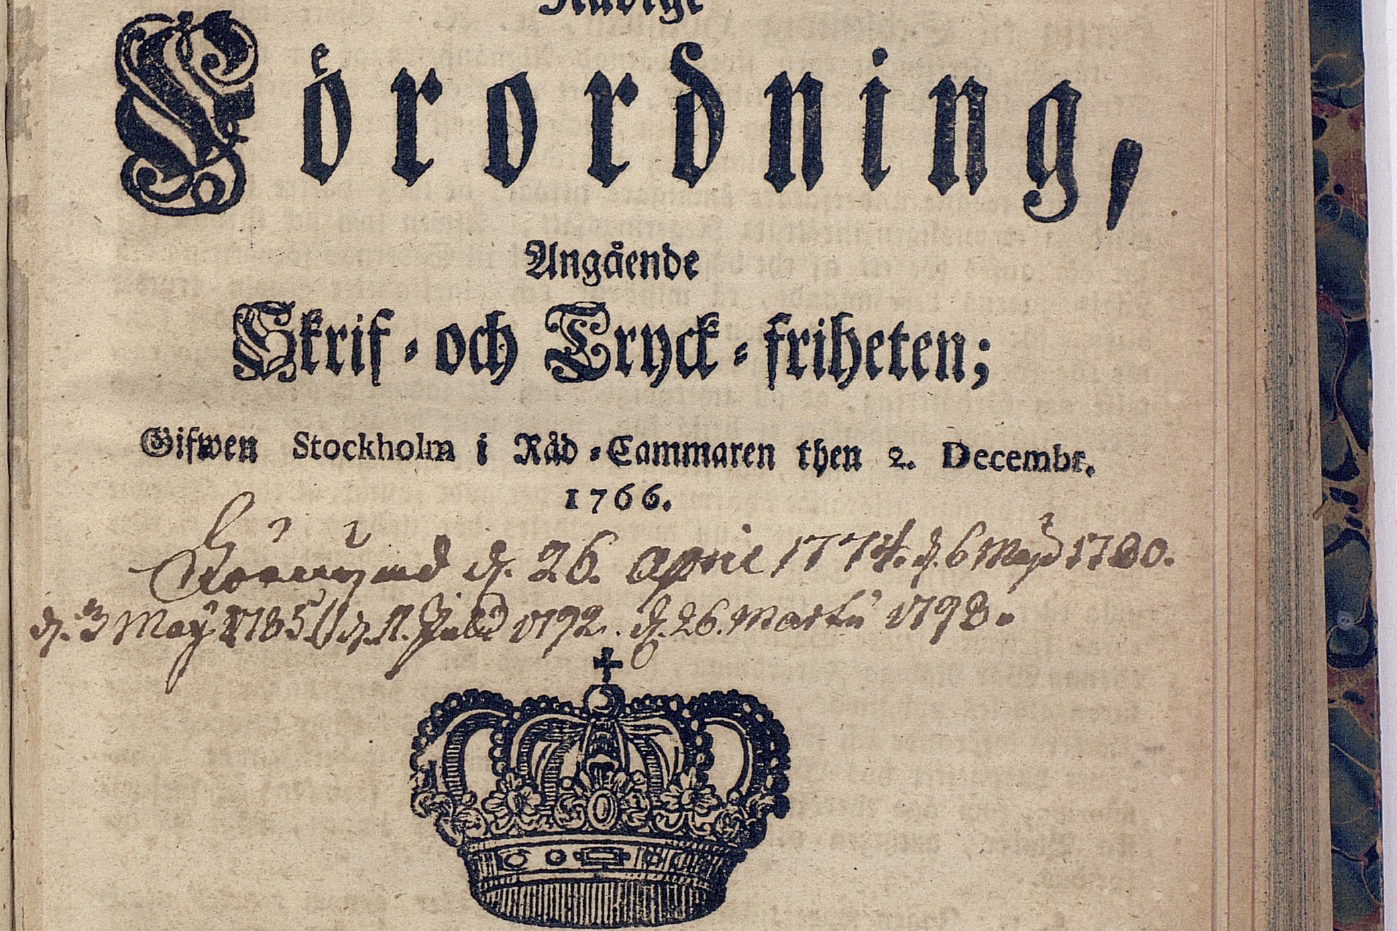 Nådige
Förordning,
Angående
Skrif- och Tryck-friheten;
Gifwen Stockholm i Råd-Cammaren then 2. Decembr.
1766.
d. 26. April 1774. d. 6 Maji 1780.
d. 3 May 1785 d. 11. 1792. d. 26. Martii 1798.